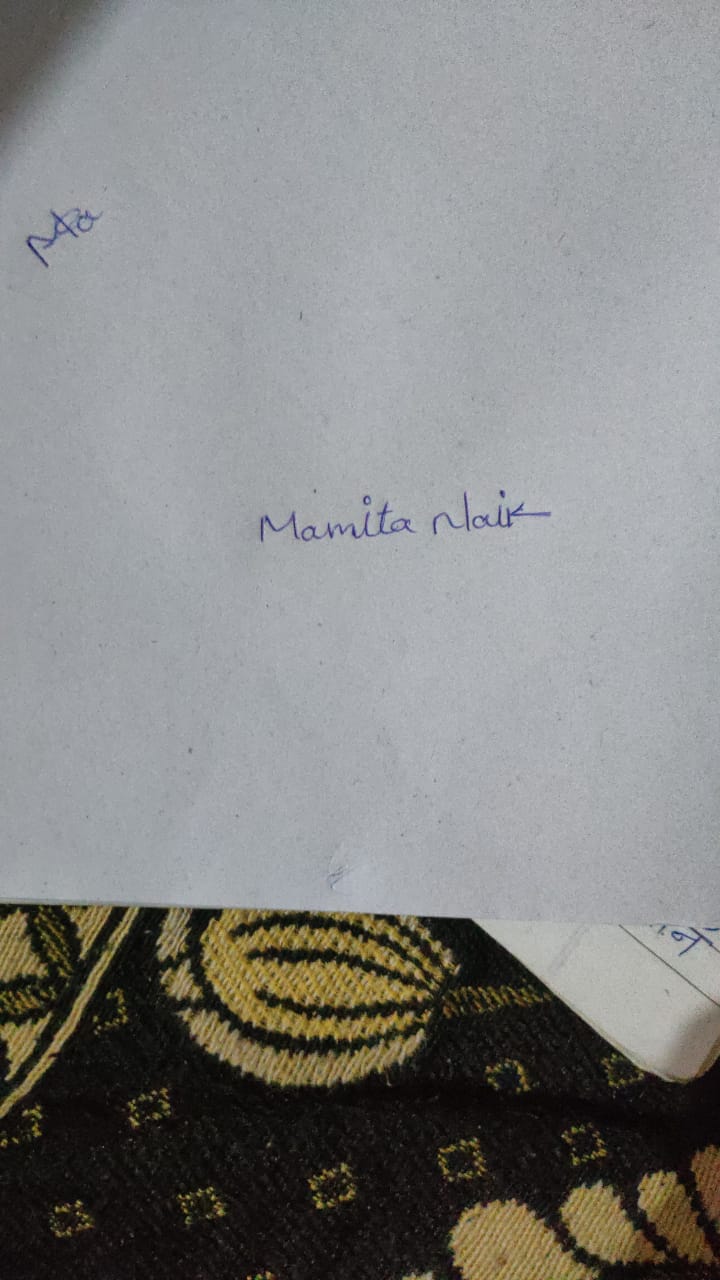 Mamita Naik